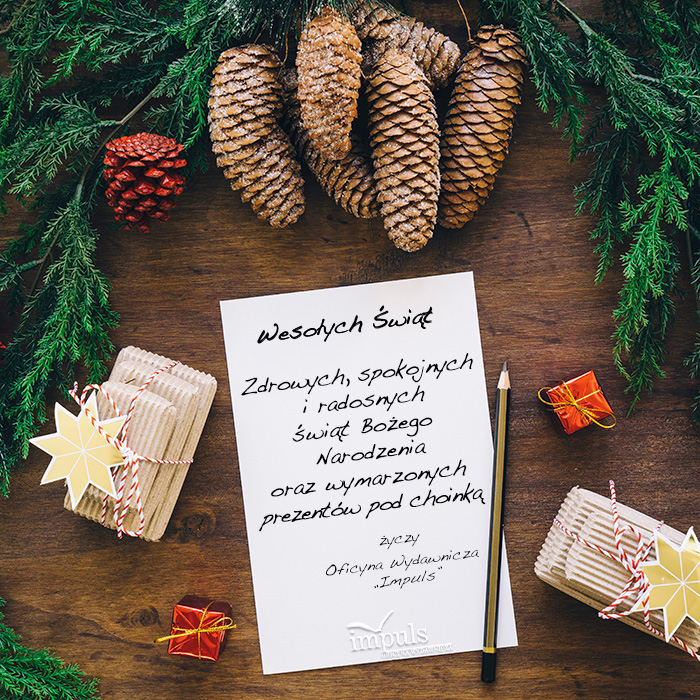 Wesołych Świąt
Zdrowych, spokojnych
i radosnych
świąt Bożego
Narodzenia
oraz wymarzonych
prezentów pod choinką
życzy
Oficyna Wydawnicza
„Impuls”
impuls